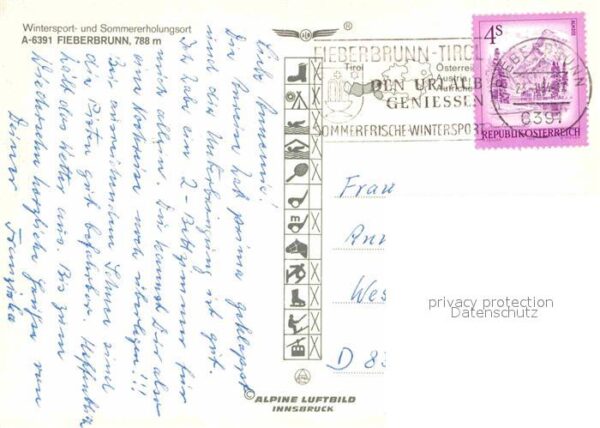 Wintersport- und Sommererholungsort
A-6391 FIEBERBRUNN, 788 m
Liebe Annemie!
Die Anreise hat prima geklappt
und die Unterbringung ist gut.
Ich habe ein 2-Bettzimmer für
mich allein. Du kannst Dir also
ein Kommen noch überlegen!!!
Bei strahlendem Schnee sind
die Pisten gut befahrbar. Hoffentlich
hält das Wetter aus. Bis zum
Wiedersehen herzliche Grüße von
Deiner Franziska
FIEBERBRUNN-TIROL
Tirol
Österreich
Austria
Autriche
DEN URLAUB
GENIESSEN
SOMMERFRISCHE-WINTERSPORT
FIEBERBRUNN
6391
4S
REPUBLIK ÖSTERREICH
Frau
Ann
Wes
D 83
privacy protection
Datenschutz
© ALPINE LUFTBILD
INNSBRUCK